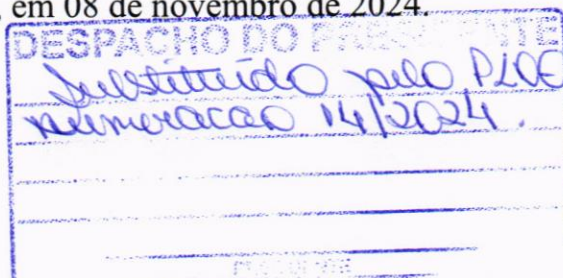 em 08 de novembro de 2024.
DESPACHO DO PRESIDENTE
Substituído pelo PLOE
numeracao 14/2024.